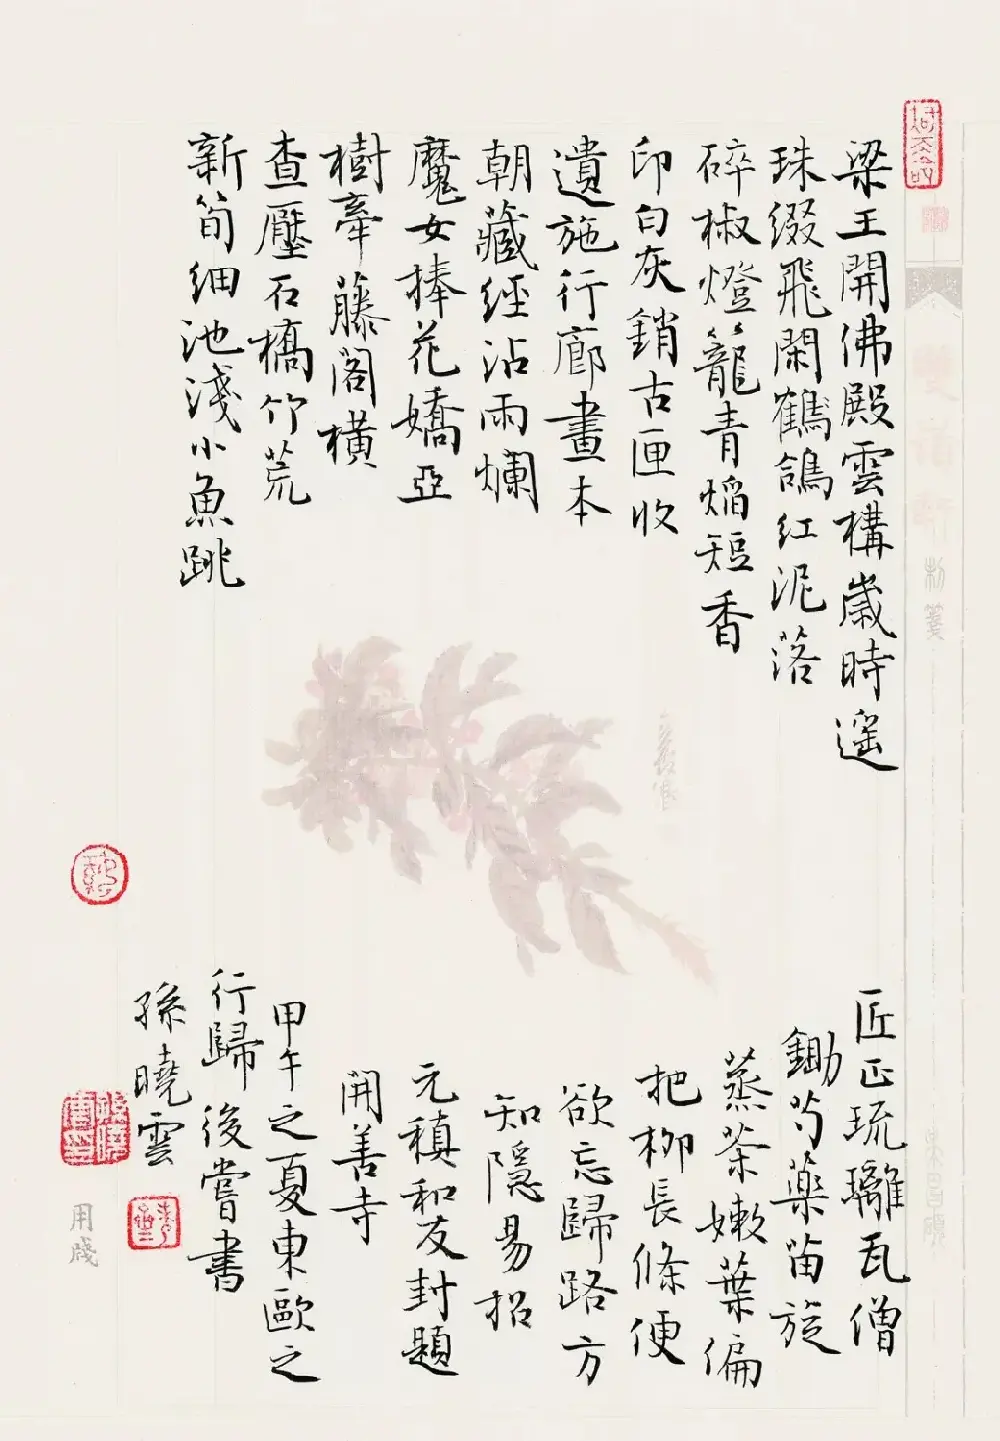 梁王開佛殿雲構歲時遥
珠綴飛閑鶴鴿紅泥落
碎椒燈籠青焰短香
印白灰銷古匣收
遺施行廊畫本
朝藏經沾雨爛
魔女捧花嬌亞
樹牽藤閣橫
查壓石橋竹荒
新筍細池淺小魚跳
匠正琉璃瓦僧
鋤芍藥苗旋
蒸茶嫩葉偏
把柳長條便
欲忘歸路方
知隱易招
元稹和友封題
開善寺
甲午之夏東歐之
行歸後嘗書
孫曉雲
用牋